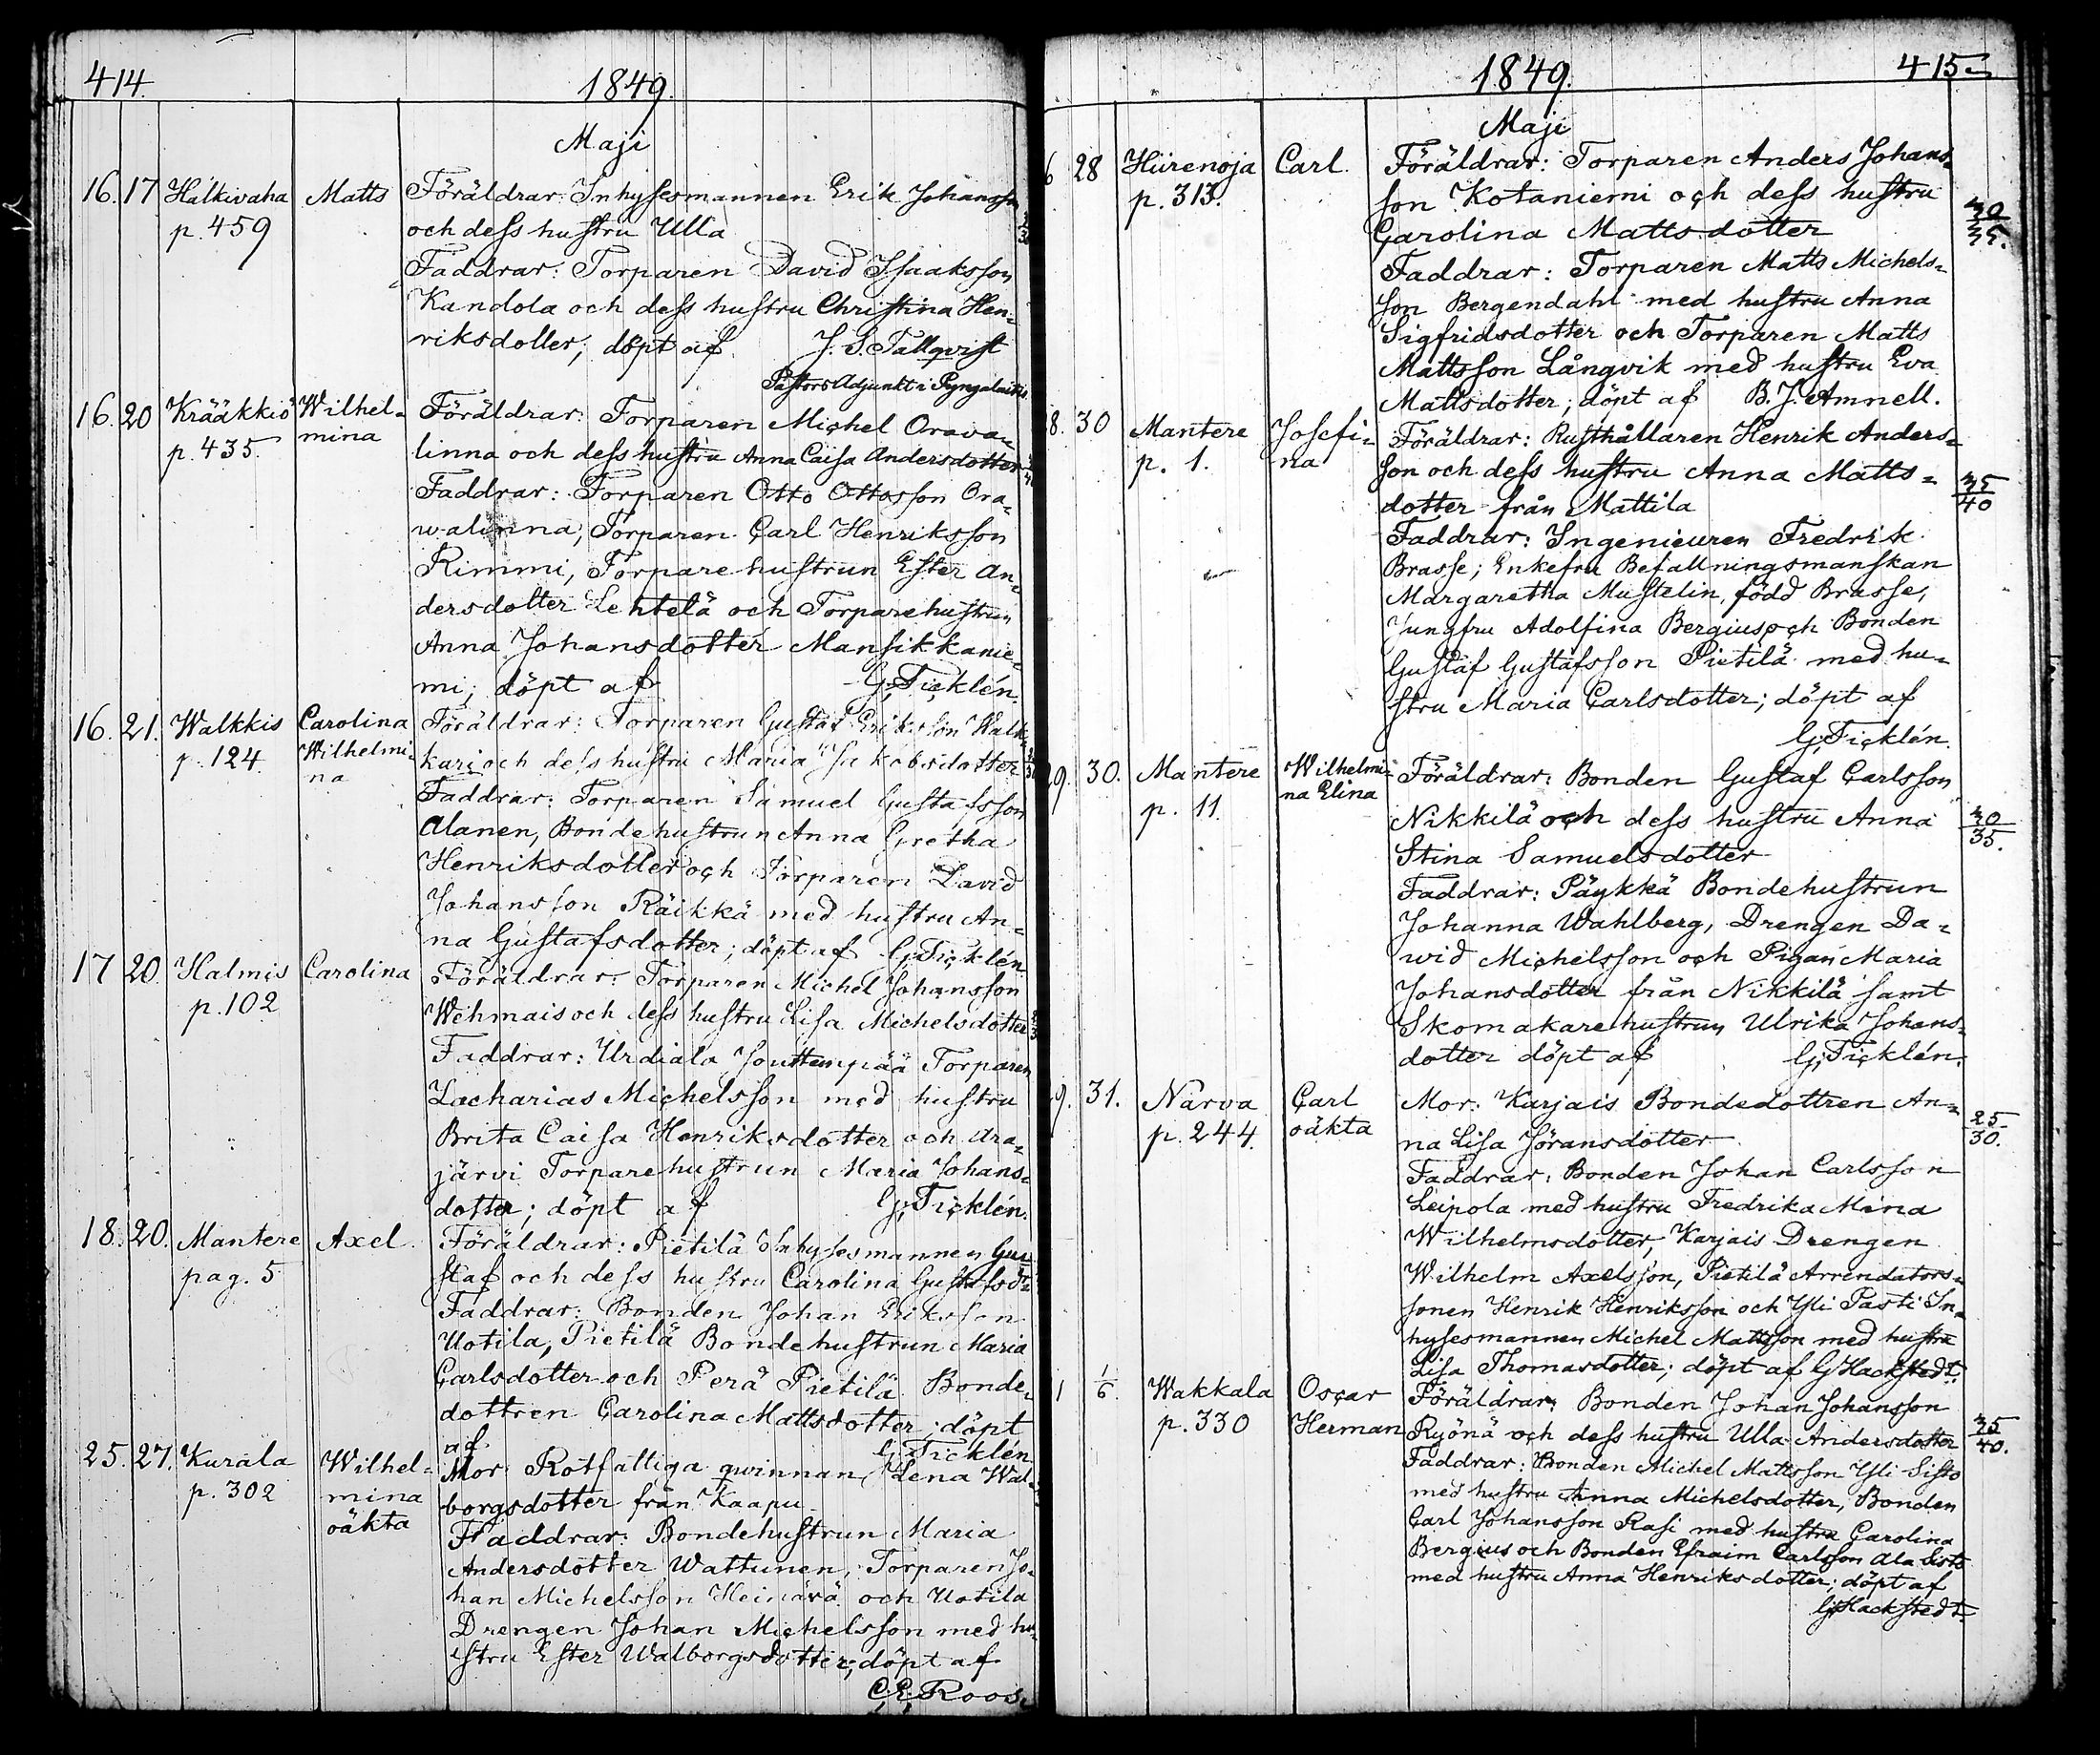 414.
1849.
Maji
16. 17. Halkivaha Matts Föräldrar: Inhysesmannen Erik Johansson
p. 459 och dess hustru Ulla
Faddrar: Torparen David Isaaksson
Kandola och dess hustru Christina Hen-
riksdotter; döpt af J. S. Tallqvist
Pastors Adjunkt i
16. 20 Krääkkiö Wilhel- Föräldrar: Torparen Michel Orava-
p. 435. mina linna och dess hustru Anna Caisa Andersdotter
Faddrar: Torparen Otto Ottosson Ora-
walinna, Torparen Carl Henriksson
Rimmi, Torparehustrun Ester An-
dersdotter Lehtelä och Torparehustrun
Anna Johansdotter Mansikkanie-
mi; döpt af G. Ticklén.
16. 21. Walkkis Carolina Föräldrar: Torparen Gustaf Eriksson Walk-
p. 124. Wilhelmi- kari och dess hustru Maria Jakobsdotter
na Faddrar: Torparen Samuel Gustafsson
Alanen, Bondehustrun Anna Gretha
Henriksdotter och Torparen David
Johansson Räikkä med hustru An-
na Gustafsdotter; döpt af G. Ticklén
17 20. Halmis Carolina Föräldrar: Torparen Michel Johansson
p. 102 Wehmais och dess hustru Lisa Michelsdotter
Faddrar: Urdiala Jouttempää Torparen
Zacharias Michelsson med hustru
Brita Caisa Henriksdotter och Ara-
järvi Torparehustrun Maria Johans-
dotter; döpt af G. Ticklén.
18. 20. Mantere Axel. Föräldrar: Pietilä Inhysesmannen Gu-
pag. 5 staf och dess hustru Carolina Gustafsdr.
Faddrar: Bonden Johan Eriksson
Uotila, Pietilä Bondehustrun Maria
Carlsdotter och Perä Pietilä Bonde-
dottren Carolina Mattsdotter; döpt
af G. Ticklén
25. 27. Kurala Wilhel- Mor: Rotfattiga qwinnan Lena Wal-
p. 302 mina borgsdotter från Kaapu
oäkta Faddrar: Bondehustrun Maria
Andersdotter Wattunen, Torparen Jo-
han Michelsson Heinävä och Uotila
Drengen Johan Michelsson med hu-
stru Ester Walborgsdotter; döpt af
C. E. Roos.
1849. 415.
Maji
6 28 Hiirenoja Carl. Föräldrar: Torparen Anders Johans-
p. 313. son Kotaniemi och dess hustru 30/35.
Carolina Mattsdotter
Faddrar: Torparen Matts Michels-
son Bergendahl med hustru Anna
Sigfridsdotter och Torparen Matts
Mattsson Långvik med hustru Eva
Mattsdotter; döpt af B. J. Amnell.
8. 30 Mantere Josefi- Föräldrar: Rusthållaren Henrik Anders-
p. 1. na son och dess hustru Anna Matts- 35/40
dotter från Mattila
Faddrar: Ingenieuren Fredrik
Brasse; Enkefru Befallningsmanskan
Margaretha Mustelin, född Brasse,
Jungfru Adolfina Bergius och Bonden
Gustaf Gustafsson Pietilä med hu-
stru Maria Carlsdotter; döpt af
G. Ticklén.
29. 30. Mantere Wilhelmi- Föräldrar: Bonden Gustaf Carlsson
p. 11. na Elina Nikkilä och dess hustru Anna 30/35.
Stina Samuelsdotter
Faddrar: Päykkä Bondehustrun
Johanna Wahlberg, Drengen Da-
wid Michelsson och Pigan Maria
Johansdotter från Nikkilä samt
Skomakarehustrun Ulrika Johans-
dotter döpt af G. Ticklén.
9. 31. Narva Carl Mor: Karjais Bondedottren An-
p. 244. oäkta na Lisa Göransdotter 25/30.
Faddrar: Bonden Johan Carlsson
Leipola med hustru Fredrika Mina
Wilhelmsdotter, Karjais Drengen
Wilhelm Axelsson, Pietilä Arrendators-
sonen Henrik Henriksson och Yli Pasti In-
hysesmannen Michel Mattsson med hustru
Lisa Thomasdotter; döpt af G Hackstedt.
1 1/6. Wakkala Oscar Föräldrar: Bonden Johan Johansson
p. 330 Herman Ryönä och dess hustru Ulla Andersdotter 35/40.
Faddrar: Bonden Michel Mattsson Yli Sisto
med hustru Anna Michelsdotter, Bonden
Carl Johansson Rasi med hustru Carolina
Bergius och Bonden Efraim Carlsson Ala Sisto
med hustru Anna Henriksdotter; döpt af
G. Hackstedt